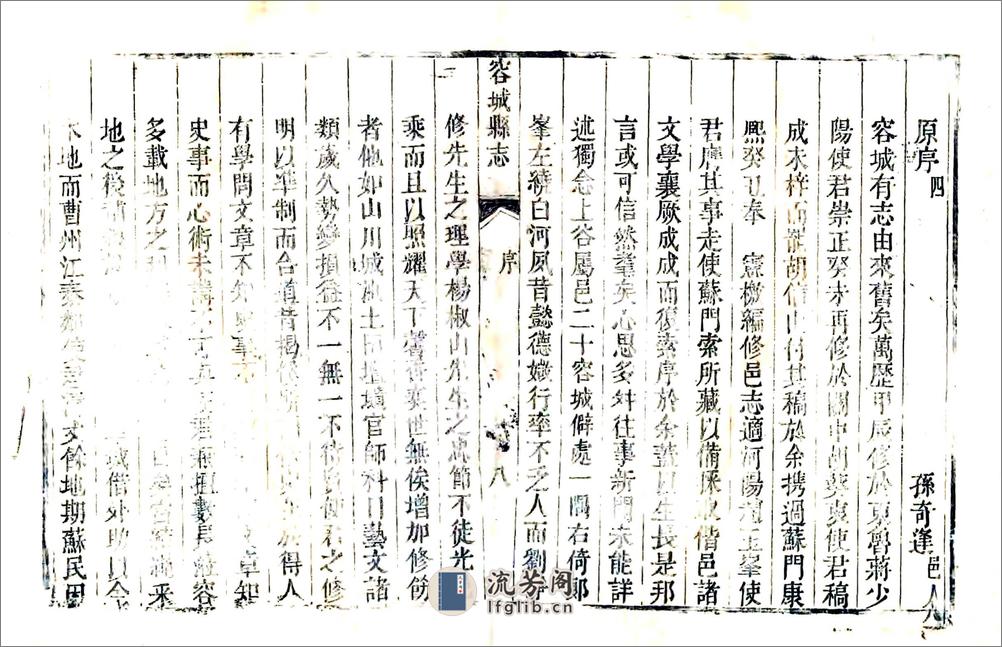 原序四 孫奇逢邑人
容城有志由來舊矣萬歷甲辰修於東魯蔣少
陽使君崇正癸未再修於關中胡葵衷使君稿
成未梓而罷胡信山付其稿於余携過蘇門康
熙癸丑奉 憲檄編修邑志適河陽趙玉峯使
君膺其事走使蘇門索所藏以備採收偕邑諸
文學襄厥成成而復索序於余蓋以生長是邦
言或可信然耄矣心思多舛往事新聞未能詳
述獨念上谷屬邑二十容城僻處一隅右倚郎
峯左繞白河夙昔懿德媺行率不乏人而劉
容城縣志 序 八
修先生之理學楊椒山先生之忠節不徒光
乘而且以照耀天下馨香奕世無俟增加修飾
者他如山川城池土田壇壝官師科目藝文諸
類歲久勢變損益不一無一不待使君之修
明以準制而合道昔揭 於得人
有學問文章不知史事 文章知
史事而心術未 君兼擅數長發容
多載地方之 悉
地之後 城借外助以
地而曹州江 文餘地期蘇民困
流芳阁
lfglib.cn